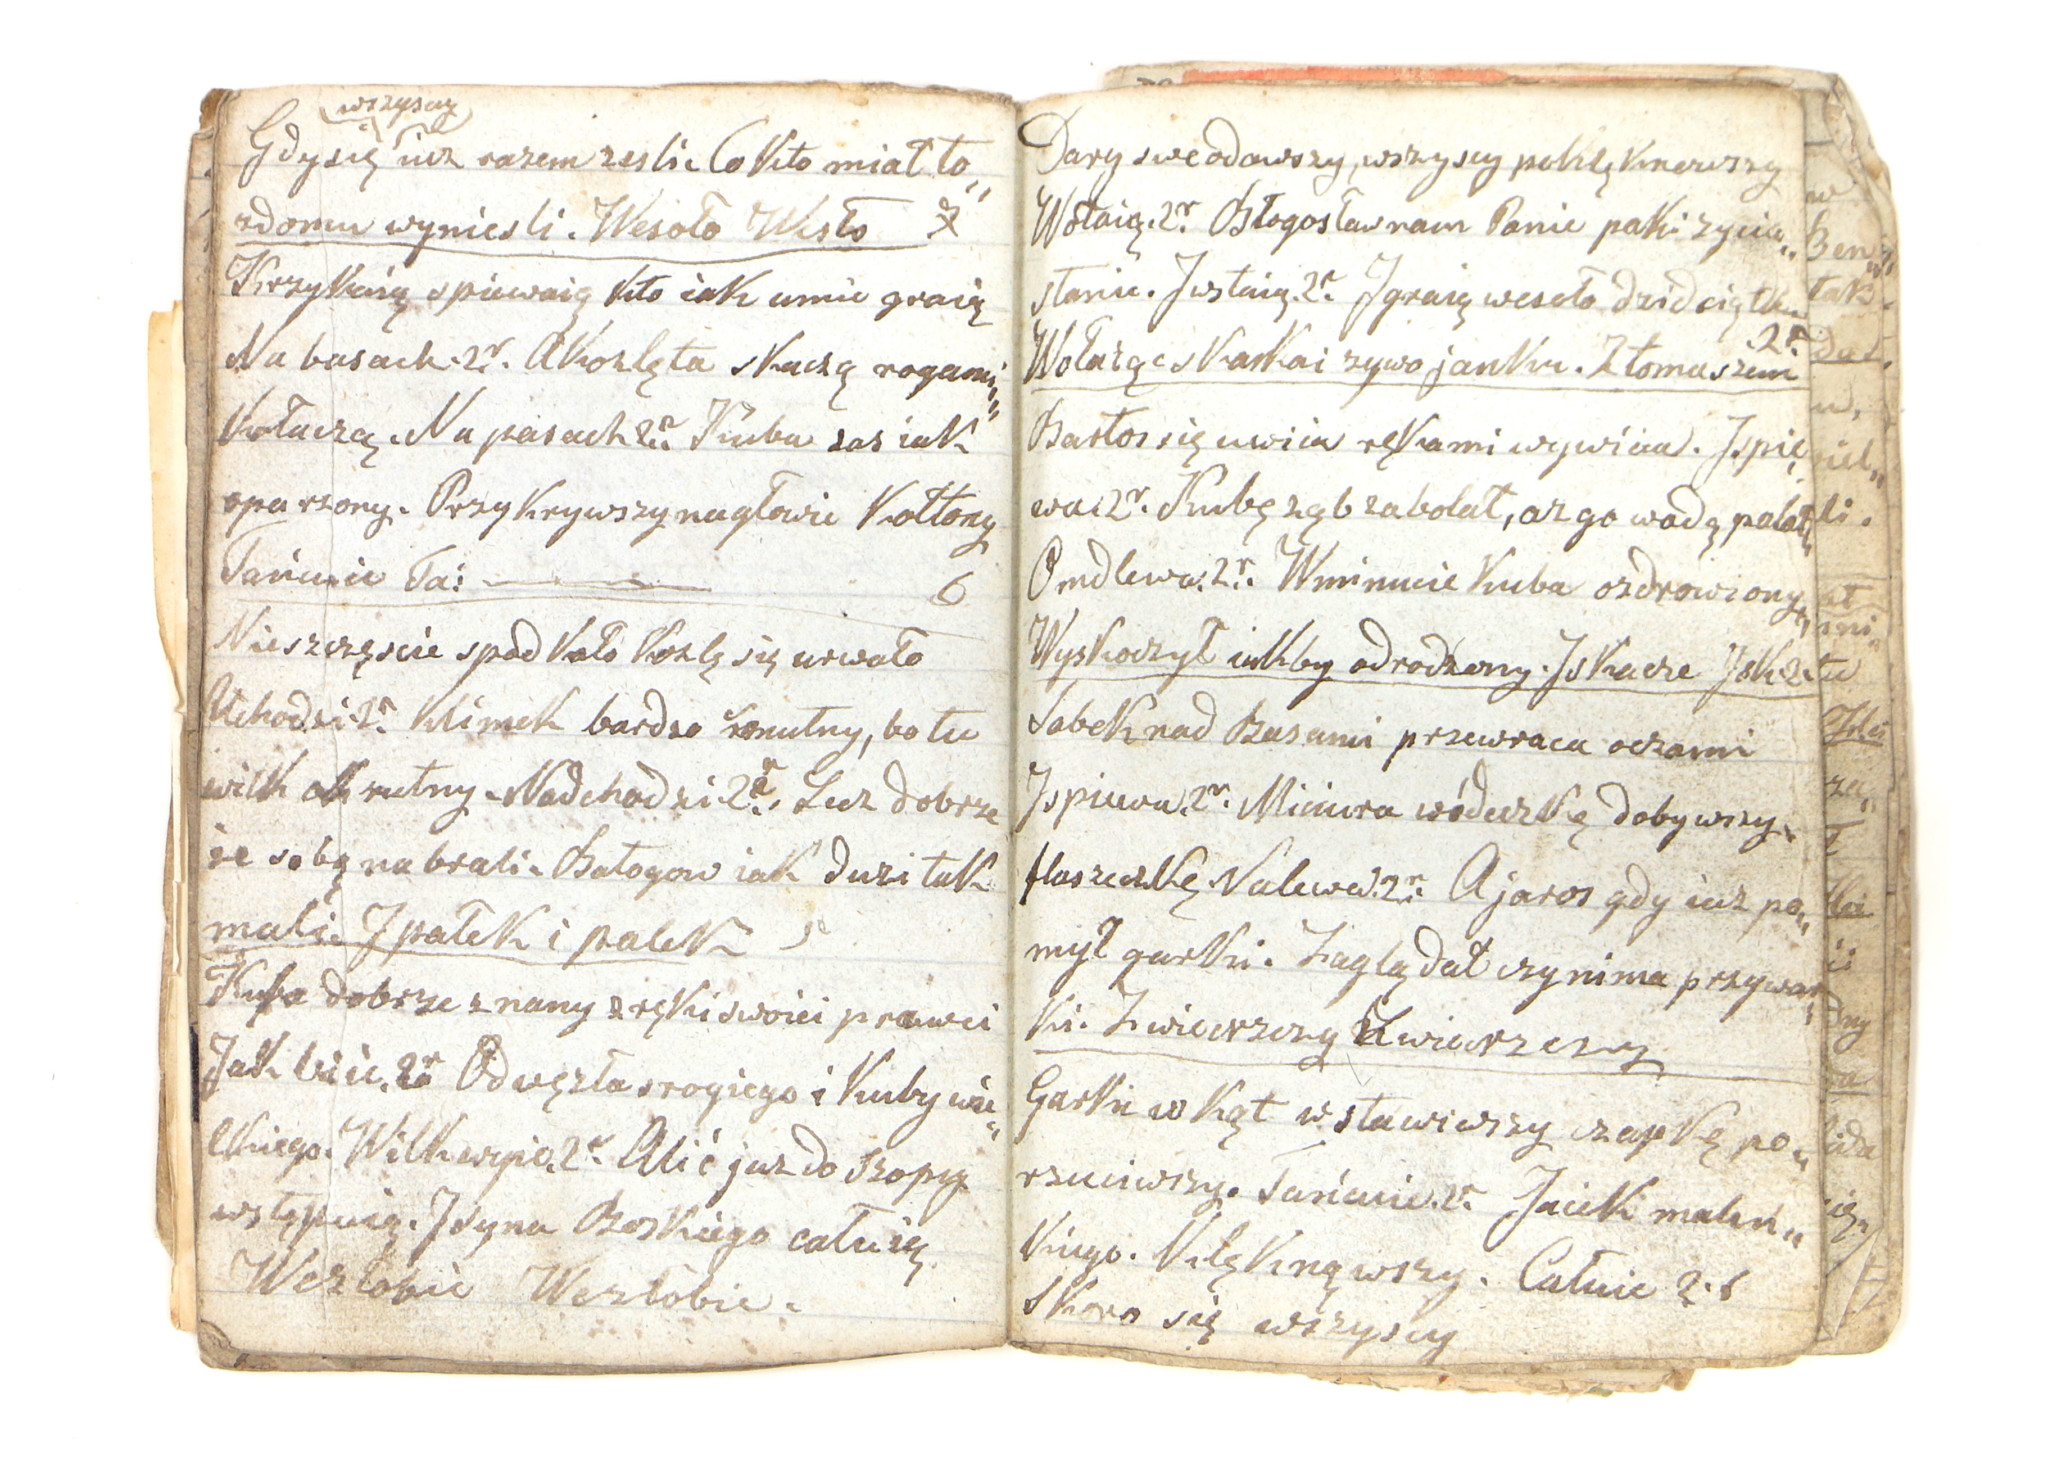 wszyscy
Gdy się iusz razem zesli. Co kto miał to„
zdomu wyniesli. Wesoło Wesło
Krzykają spiewaią kto iak umie graią
Na basach. 2r. A kozlęta skaczą rogami„
kołaczą. Na pasach 2r. Kuba zas iak
oparzony. Przykrywszy nagłowie kołtony
Tańcuie Ta: 6
Nieszczęscie spodkało kozlę się urwało
Uchodzi 2r. Klimek bardzo smutny, bo tu
wilk okrutny. Nadchodzi 2r. Lecz dobrze
ze sobą nabrali. Batogow iak duzi tak
mali. J pałek i pałek 5
Kuba dobrze znany z ręki swoiei prawei
Jak biie. 2r. Od węzła srogiego i Kuby wie„
lkiego. Wilk wyie. 2r. Alić juz do szopy
wstępuią. J syna Boskiego całuią
Wezłobie Wezłobie.
Dary swe odawszy, wszyscy poklęknowszy
Wołaią. 2r. Błogosław nam Panie poki zycia„
stanie. J wstaią. 2r. J graią wesoło dzieciątku
2r
Wołaią skakai zywo janku. Z tomaszem
Bartos się uwiia rękami wywiia. J spie„
wa. 2r. Kubę ząb zabolał, az go wodą polał„
Omdlewa. 2r. Wminucie Kuba ozdrowiony„
Wyskoczył iakby odrodzony. J skacze J sk. 2.
Sobek nad Basami przewraca oczami
J spiewa. 2r. Miciura wódeczkę dobywszy„
flaszeczkę. Nalewa. 2r. A jaros gdy iuz po„
mył garki. Zaglądał czy nima przywar„
ki. Zwieczerzy Zwieczerzy
Garki w kąt wstawiwszy czapkę po„
rzuciwszy. Tańcuie. 2r. Jacek maleń„
kiego. Nilęknąwszy. Całuie 2.r
Skoro się wszyscy